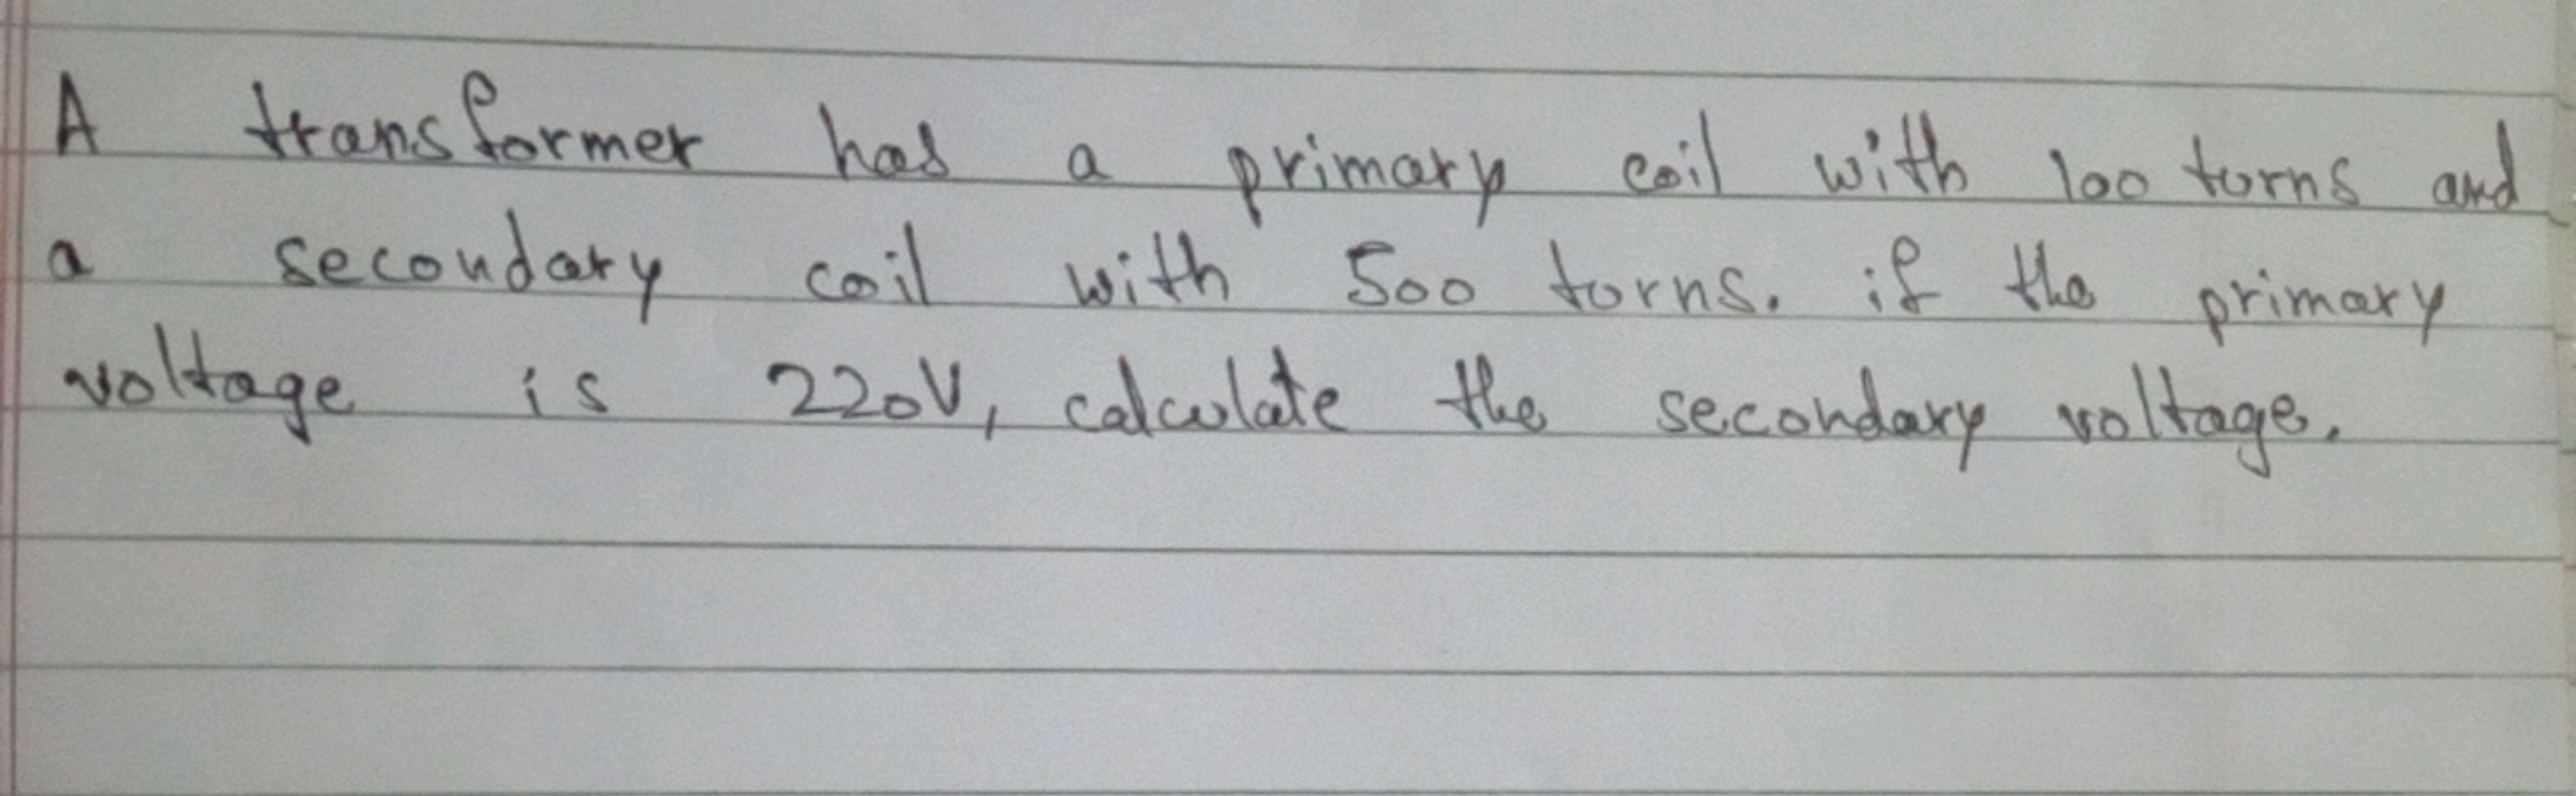 A transformer has a primary coil with 100 turns and
a secondary coil with 500 turns. if the primary
voltage is 220V, calculate the secondary voltage.